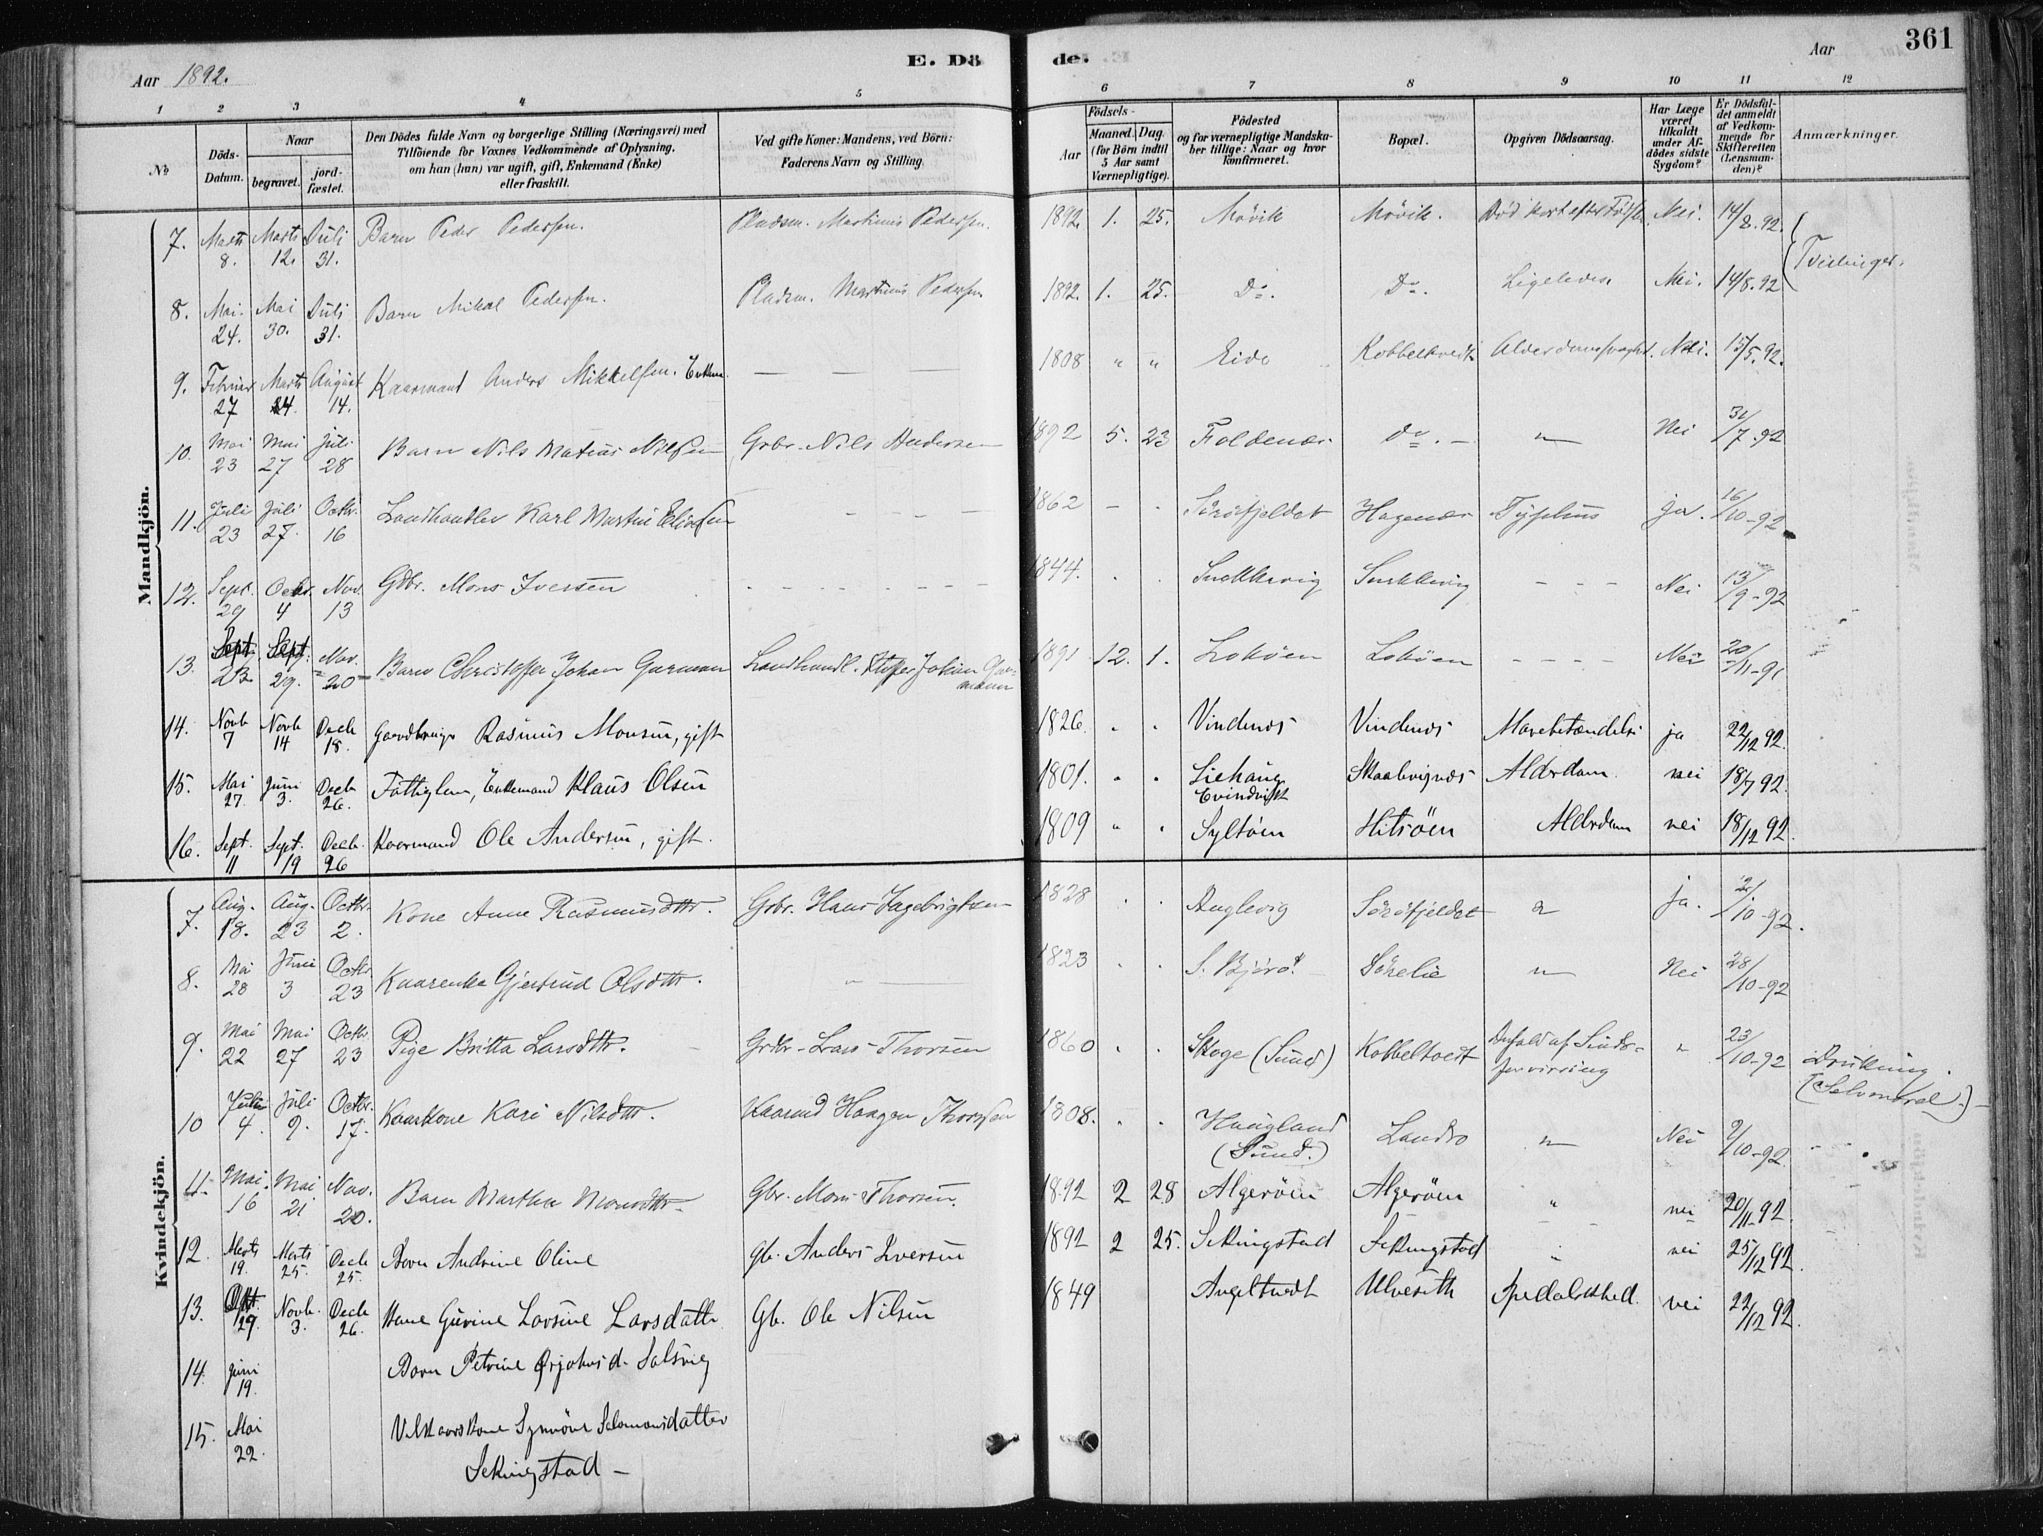 Aar 1892. E. Dö de. Aar 361
1 2 3 4 5 6 7 8 9 10 11 12
No Döds-Datum. Naar begravet. jordfæstet. Den Dödes fulde Navn og borgerlige Stilling (Næringsvei) med Tilföiende for Voxnes Vedkommende af Oplysning, om han (hun) var ugift, gift, Enkemand (Enke) eller fraskilt. Ved gifte Koner: Mandens, ved Börn: Faderens Navn og Stilling. Födsels- Aar Maaned. Dag. (for Börn indtil 5 Aar samt Værnepligtige). Födested og for værnepligtige Mandskaber tillige: Naar og hvor konfirmeret. Bopæl. Opgiven Dödsaarsag. Har Læge været tilkaldt under Afdödes sidste Sygdom? Er Dödsfaldet anmeldt af Vedkommende for Skifteretten (Lensmanden)? Anmærkninger.
Mandkjön.
7. Marts 8. Marts 12. Juli 31. Barn Peder Pedersen. Pladsm. Martinus Pedersen. 1892. 1. 25. Mövik Mövik. Död kort efter Födsl. Nei. 14/8.92. Tvillinger.
8. Mai 24. Mai 30. Juli 31. Barn Mikal Pedersen. Pladsm. Martinus Pedersen 1892. 1. 25. Do. Do. Ligeledes Nei. 14/8.92
9. Februar 27 Marts 24. August 14. Kaarmand Anders Mikkelsen. Enkem. — — — 1808 " " Eide Kobbeltvedt Alderdomssvaghd. Nei. 15/5.92.
10. Mai 23 Mai 27 Juli 28 Barn Nils Matias Nilsen Grbr. Nils Andersen 1892 5. 23 Foldenæs do. — " Nei 31/7.92
11. Juli 23 Juli 27. Octbr. 16 Landhandler Karl Martin Eliasen - - - - 1862 - - Söröfjeldet Hagenæs Typhus ja. 16/10-92
12. Sept. 29 Octbr. 4 Nov. 13 Gdbr. Mons Iversen - - - - 1844. . . Snekkevig Snekkevig - - - Nei 13/9-92
13. Sept. 23. Sept. 29. Nov. 20 Barn Christoffer Johan Garmann Landhandl. Stoffer Johan Garmann 1891 12. 1. Lokøen Lokøen - - - - Nei 20/11-91
14. Novb 7 Novb 14 Decb 18. Gaardbruger Rasmus Monsen, gift 1826. . . Vindenes Vindenes Mavebetændelse ja 22/12 92.
15. Mai 27 Juni 3. Decb 26. Fattiglem, Enkemand Klaus Olsen 1801. " . Liehaug Evindvigt Skaalvignæs Alderdom. nei 18/7 92.
16. Sept. 11 Sept. 19 Decb. 26 Kaarmand Ole Andersen, gift. 1809 " . Syltøen Hitsöen Alderdom nei 18/12 92.
Kvindekjön.
7. Aug. 18. Aug. 23 Octbr. 2. Kone Anne Rasmusdttr. Grbr. Hans Ingebrigtsen 1828 . . Anglevig Söröfjeldet " ja. 2/10-92.
8. Mai 28 Juni 3 Octbr. 23 Kaarenke Gjertrud Olsdttr. " — 1823 . . S. Bjørø. Sörelie " Nei 28/10-92
9. Mai 22 Mai 27 Octbr. 23 Pige Britta Larsdttr. Grdbr. Lars Thorsen 1860 . . Skoge (Sund) Kobbeltvedt Anfald af Sindsforvirring " 23/10-92 Drukning. (Selvmord.)
10 Juli 4. Juli 9. Octbr. 17. Kaarkone Kari Nilsdttr. Kaarmd Haagen Thorsen 1808. . . Haugland (Sund.) Landro " Nei 9/10-92.
11. Mai 16 Mai 21 Nov. 20. Barn Martha Monsdttr. Gbr. Mons Thorsen. 1892 2 28 Algerøen Algerøen " nei 20/11 92.
12. Marts 19. Marts 25. Decb 25. Barn Andrine Oline Gb. Anders Iversen 1892 2 25. Sekingstad Sekingstad " nei 25/12 92.
13. Okt. 29. Novb. 3. Decb 26. Kone Gurine Larsine Larsdattr Gb. Ole Nilsen 1849 Angeltvedt Ulveseth Spedalskhed. nei 22/12 92.
14. Juni 19. Barn Petrine Ørjahnsd. Solsvig
15. Mai 22. Vilkaarskone Synnöve Salomonsdatter
Sekingstad —